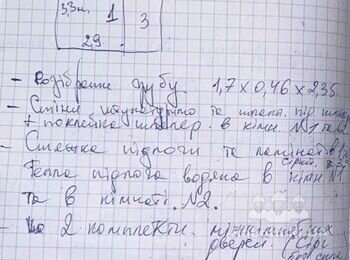 3,3м. 1 3
29
- Розібрати грубу 1,7 x 0,46 x 2,35
- Стіни штукатурити та шпакл. під шпал
+ поклейка шпалер. в кімн. №1 та №2
- Стяжка підлоги та ламінат.
Тепла підлога водяна в кімн. №1
та в кімнаті №2.
- 2 комплекти міжкімнатних
дверей. (Сірі